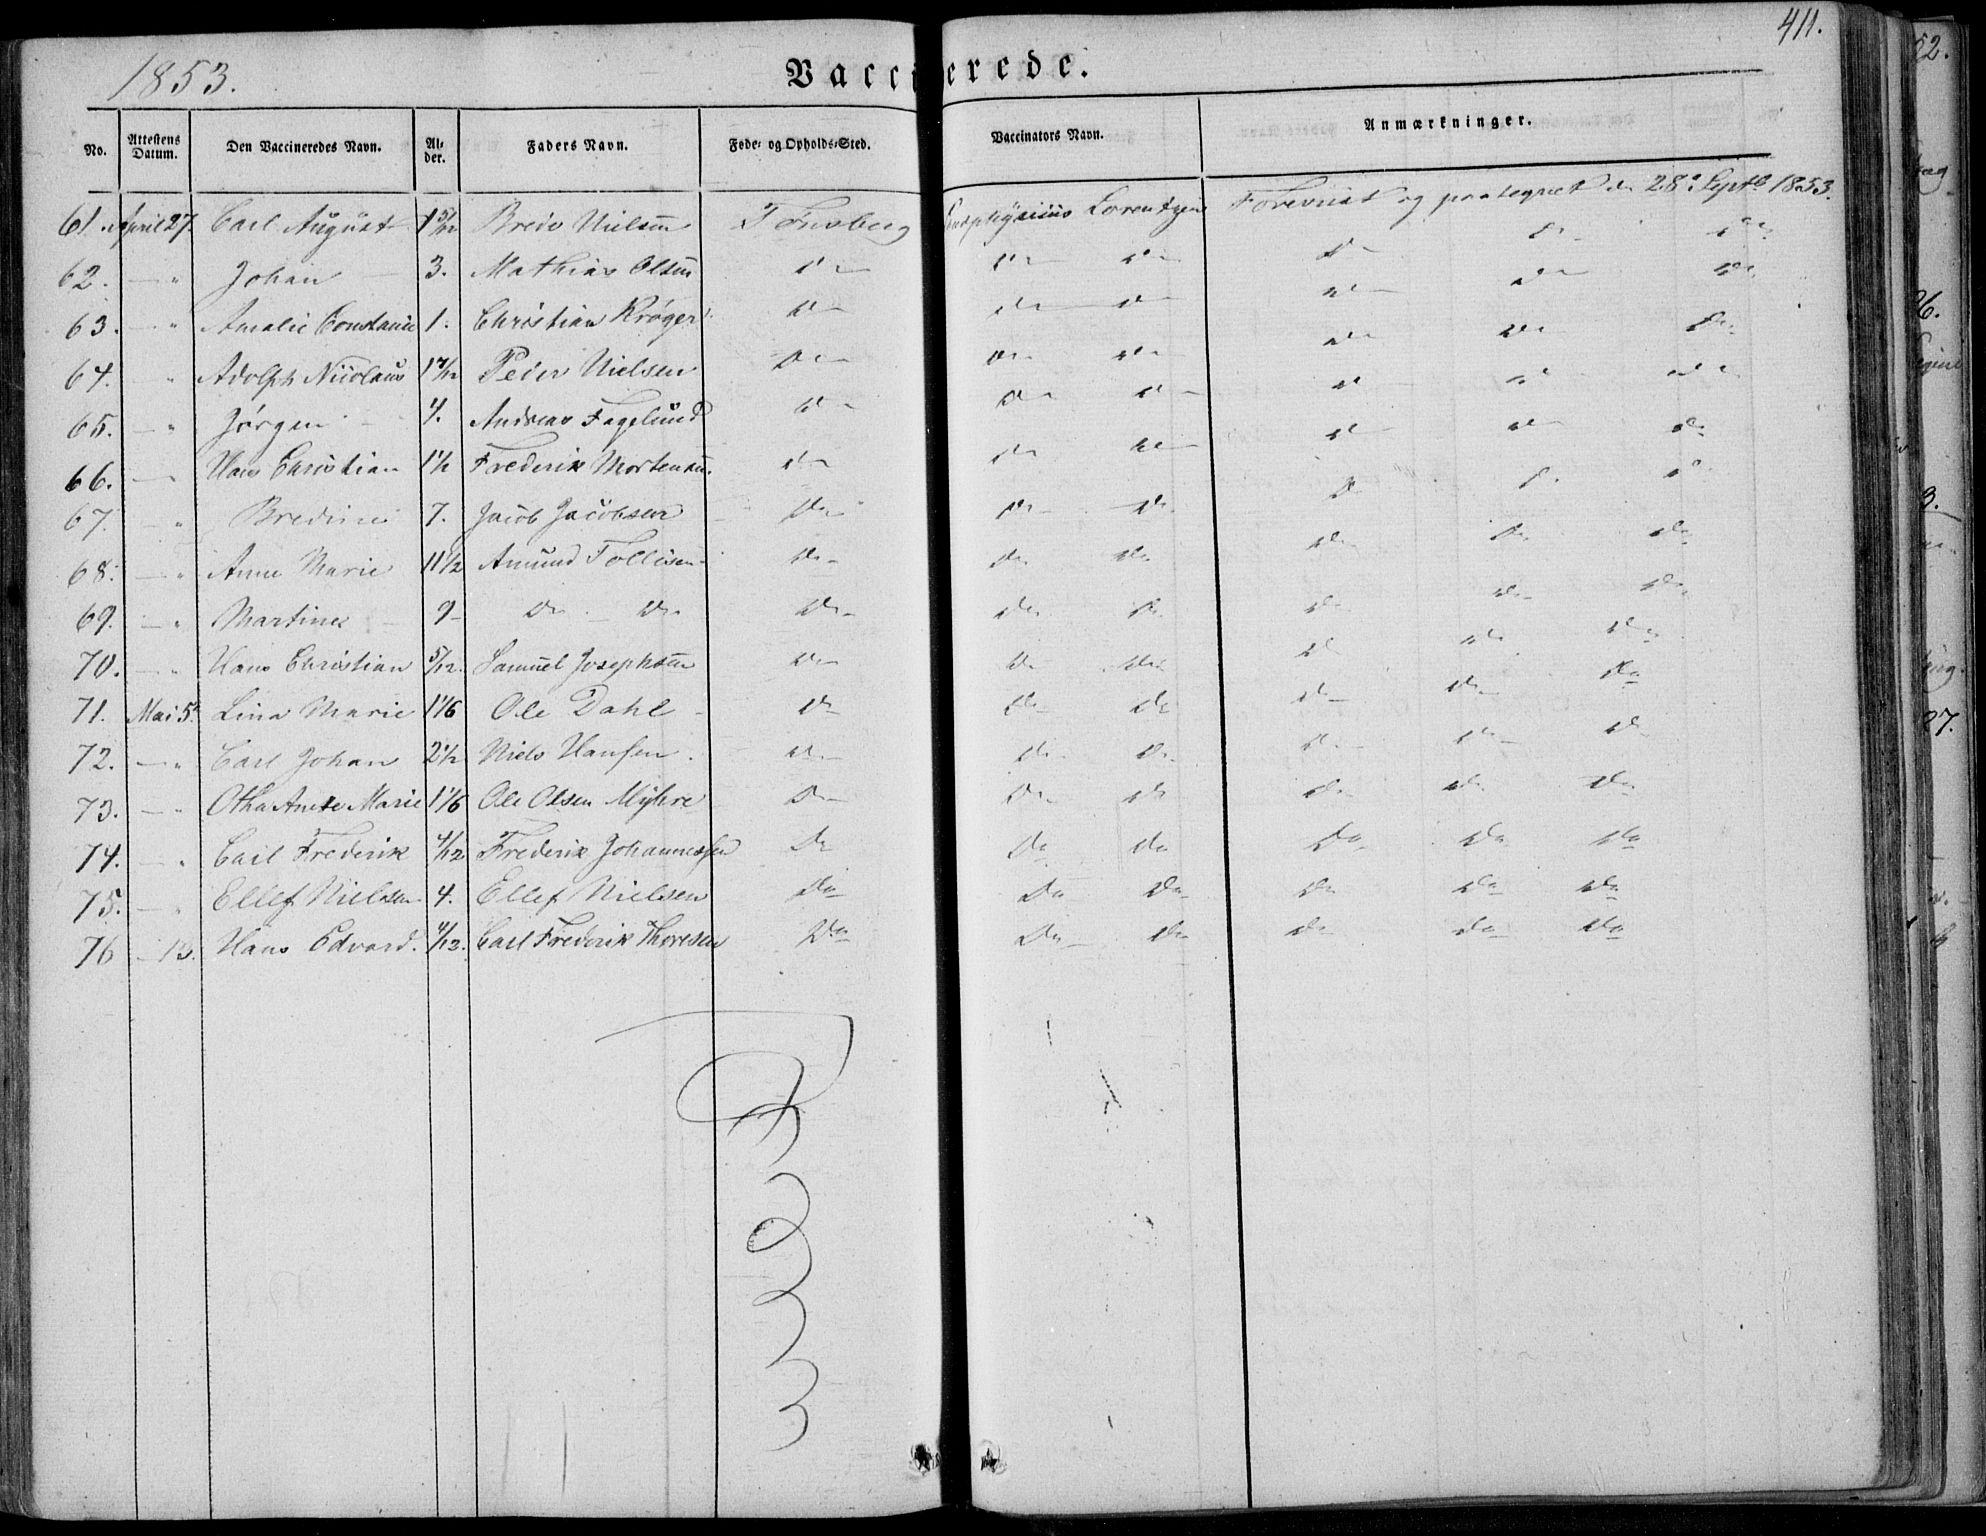 1853.
Vaccinerede.
411.
No. Attestens Datum. Den Vaccineredes Navn. Al-der. Faders Navn. Føde- og Opholds-Sted. Vaccinators Navn. Anmærkninger.
61. April 27. Carl August 1 5/12 Brede Nielsen Tønsberg Lorentzen Foreviist og paategnet d. 28de Septb 1853.
62. — " Johan 3. Mathias Olsen Do Do Do Do Do Do
63. — " Amalie Constance 1. Christian Krøger Do Do Do Do Do Do
64. — " Adolph Nicolaus Peder Nielsen Do Do Do Do Do Do
65. — " Jørgen 4. Andreas Fagelund Do Do Do Do Do Do
66. — " Hans Christian 1½ Frederik Mortensen Do Do Do Do Do Do
67. — " Bredine 7. Jacob Jacobsen Do Do Do Do Do Do
68. — " Anne Marie 11½ Amund Tollisen Do Do Do Do Do Do
69. — " Martine 9 Do Do Do Do Do Do Do Do
70. — " Hans Christian 5/12. Samuel Josephsen Do Do Do Do Do Do
71. Mai 5. Lina Marie 1 1/6 Ole Dahl Do Do Do Do Do Do
72. — " Carl Johan 2½ Niels Hansen. Do Do Do Do Do Do
73. — " Otha Anete Marie 1 1/6 Ole Olsen Myhre Do Do Do Do Do Do
74. — " Carl Frederik 4/12 Frederik Johannessen Do Do Do Do Do Do
75. — " Ellef Nielsen 4. Ellef Nielsen Do Do Do Do Do Do
76 — 13. Hans Edvard. 4/12. Carl Frederik Thoresen Do Do Do Do Do Do